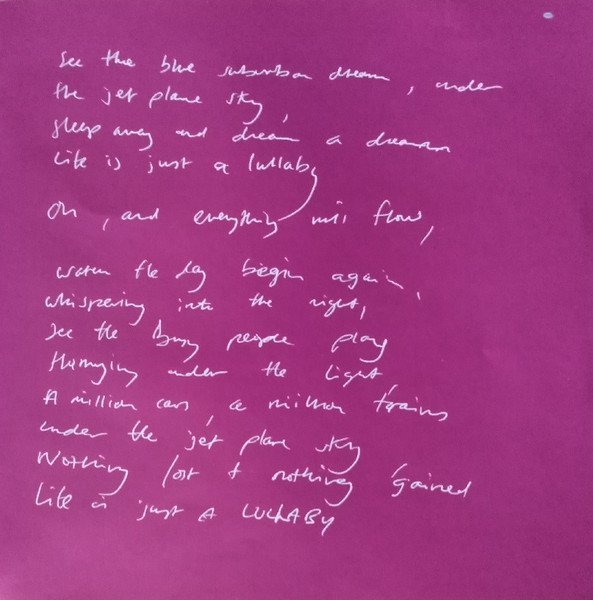 See the blue suburban dream, under
the jet plane sky,
sleep away and dream a dream
Life is just a lullaby
Oh, and everything will flow,
watch the day begin again,
whispering into the night,
see the busy people play
Hurrying under the light
A million cars, a million trains
under the jet plane sky
Nothing lost & nothing gained
Life is just a LULLABY